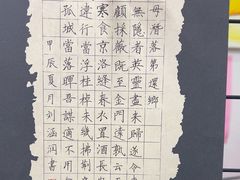 母潛落第還鄉
無隱者英靈盡來歸遂令
顧採薇既至金門遠孰云
寒食京洛縫春衣置酒長
違行當浮桂棹未幾拂荊
孤城當落暉吾謀適不用
甲辰夏月劉涵潤書